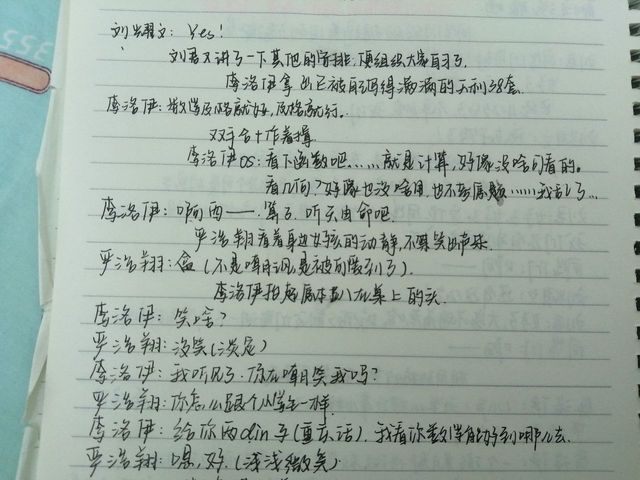 刘耀文：Yes！
刘君又讲了一下其他的安排，便组织大家自习了。
李洛伊拿出已被自己写得满满的天利38套。
李洛伊：数学及格就好，及格就行。
双手合十作着揖
李洛伊OS：看下函数吧……就是计算，好像没啥可看的。
看几何？好像也没啥用，也不到原题……我去了…
李洛伊：啊西——.算了.听天由命吧.
严浩翔看着身边女孩的动静，不禁笑出声来.
严浩翔：盒（不是嘲讽是被可爱到了）.
李洛伊抬起原本趴在桌上的头.
李洛伊：笑啥？
严浩翔：没笑（淡定）
李洛伊：我听见了.你在嘲笑我吗？
严浩翔：你怎么跟个小学生一样.
李洛伊：给你两din子（重庆话）.我看你数学能好到哪儿去.
严浩翔：嗯，好.（浅浅微笑）